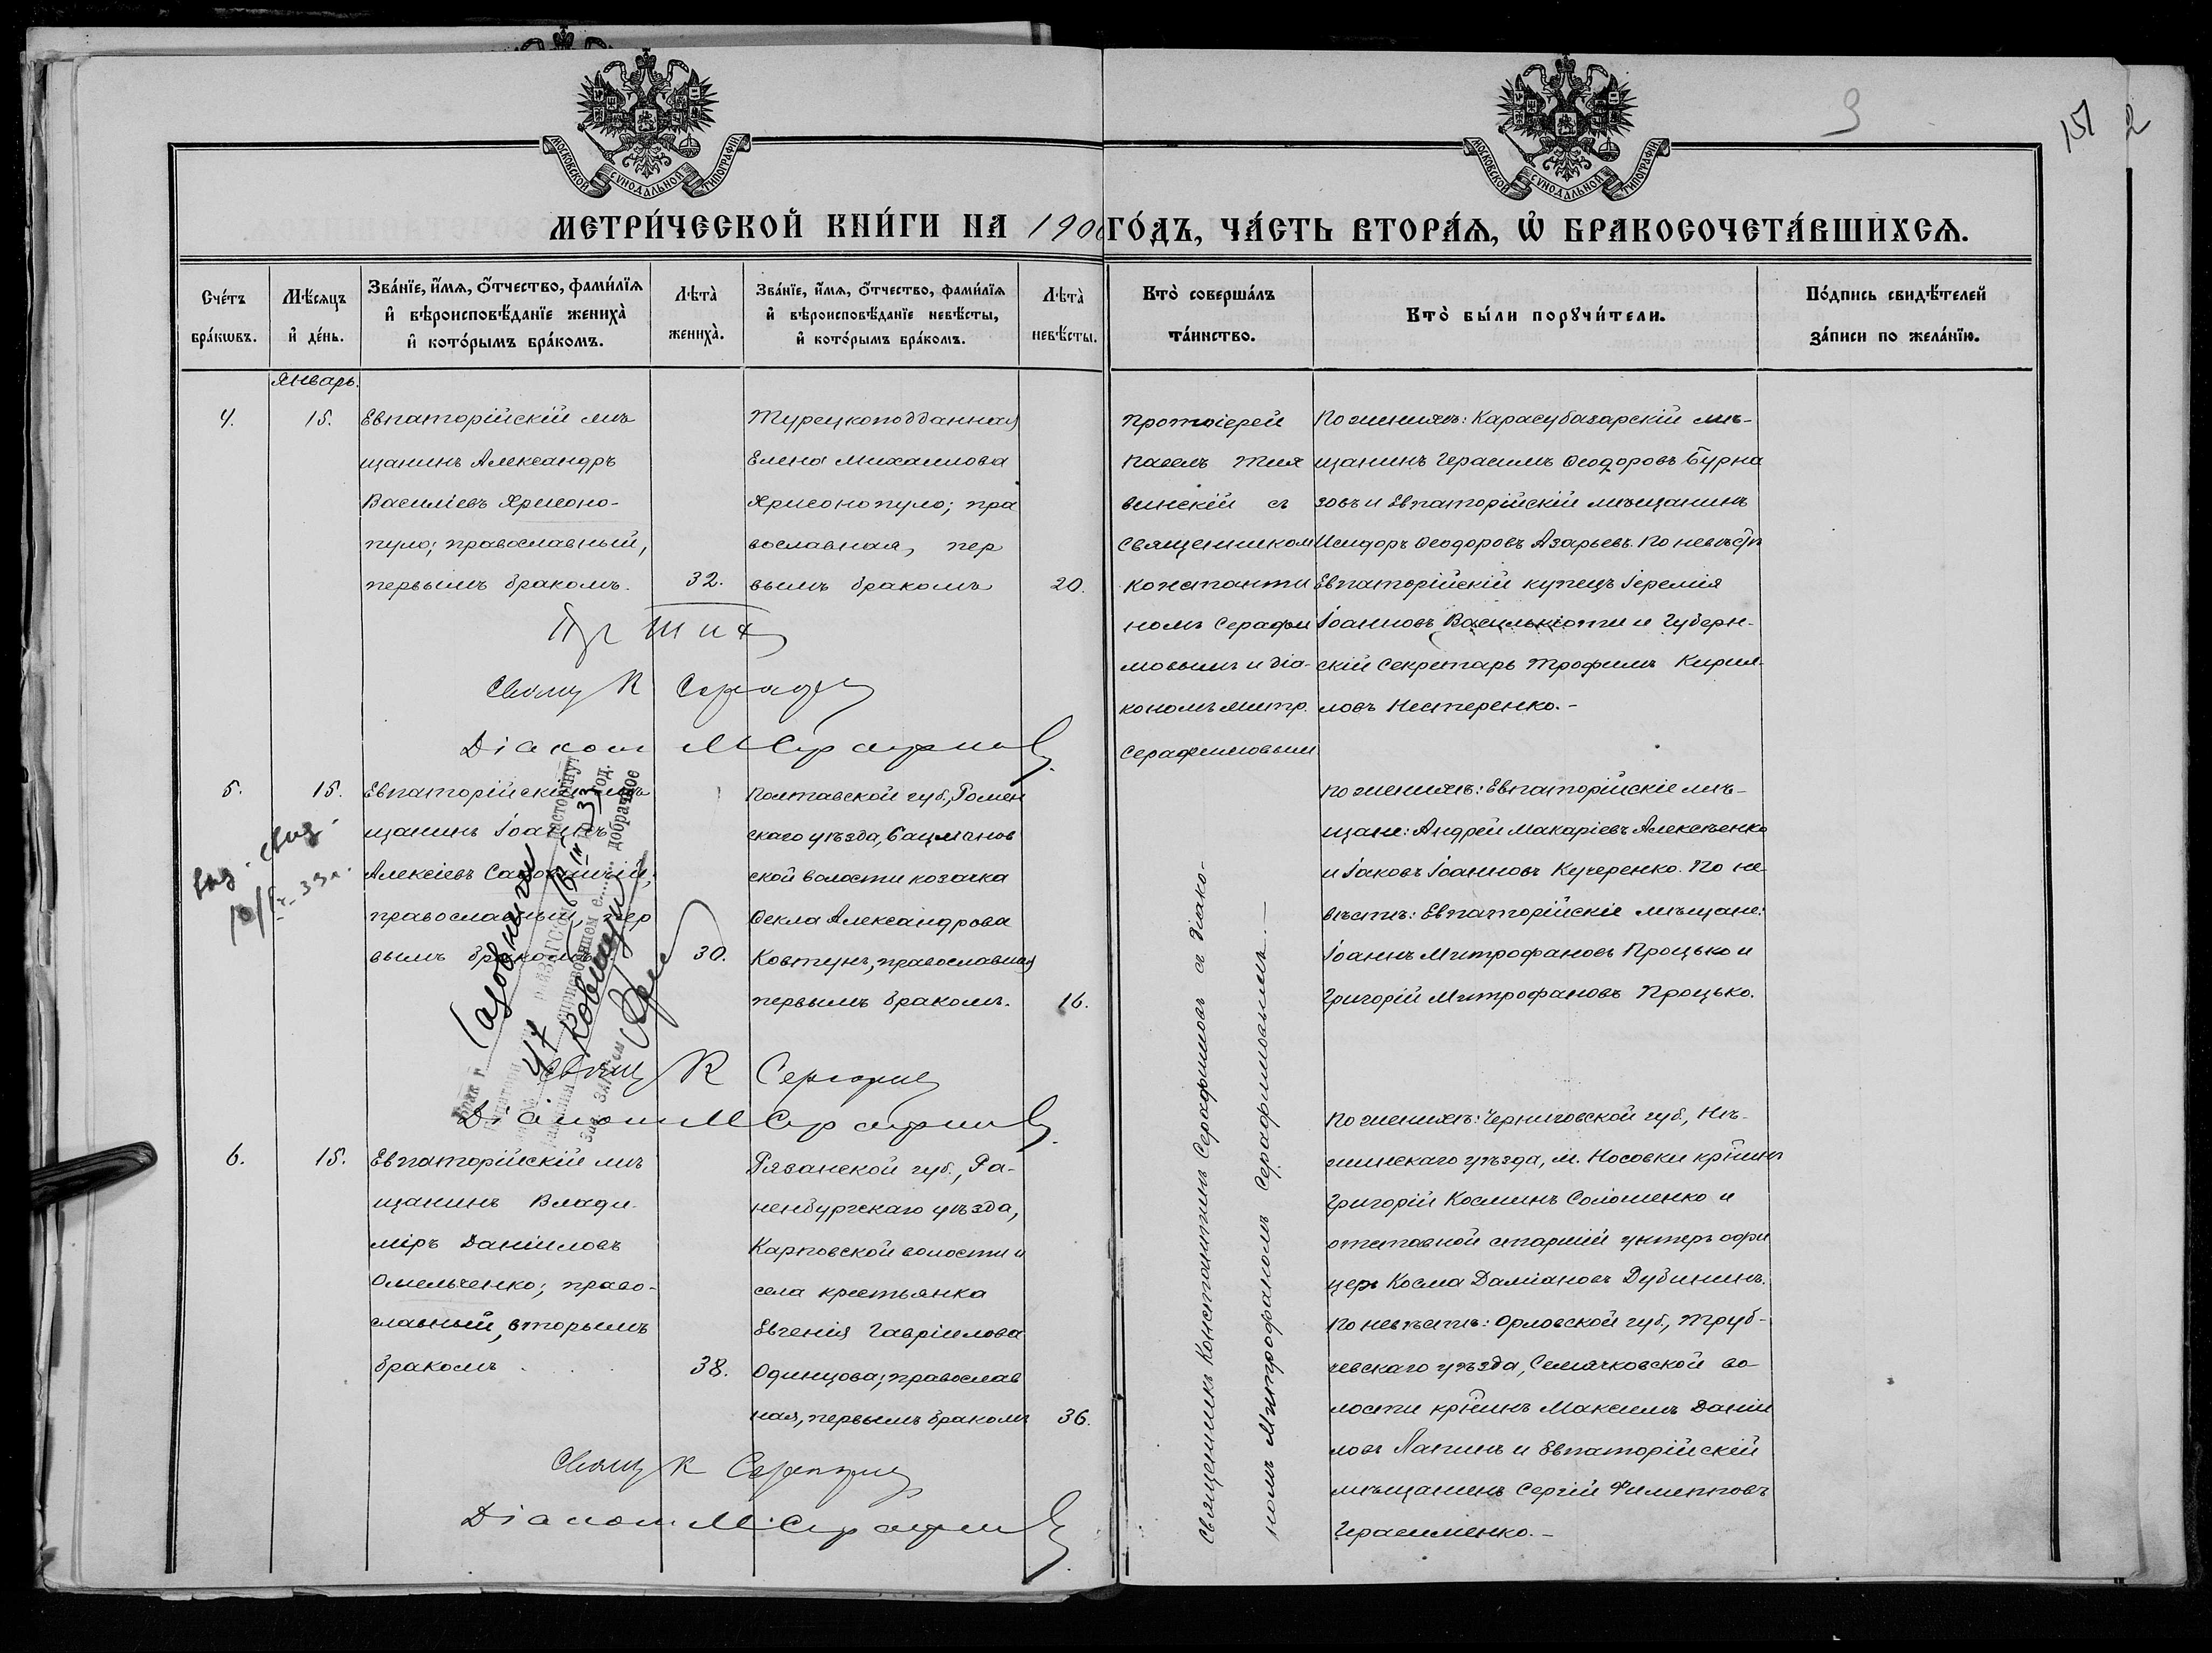 МОСКОВСКОЙ СѴНОДАЛЬНОЙ ТИПОГРАФІИ
МОСКОВСКОЙ СѴНОДАЛЬНОЙ ТИПОГРАФІИ
151 2
МЕТРИ́ЧЕСКОЙ КНИ́ГИ НА 190 ГО́ДЪ, ЧА́СТЬ ВТОРА́Я, Ѡ БРАКОСОЧЕТА́ВШИХСЯ.
Сче́тъ бра́кѡвъ.
Мѣ́сяцъ и де́нь.
Зва́нїе, и́мя, ѻ́тчество, фами́лїя
и вѣроисповѣ́данїе жениха̀
и кото́рымъ бра́комъ.
Лѣта̀ жениха̀.
Зва́нїе, и́мя, ѻ́тчество, фами́лїя
и вѣроисповѣ́данїе невѣ́сты,
и кото́рымъ бра́комъ.
Лѣта̀ невѣ́сты.
Кто̀ соверша́лъ
та́инство.
Кто̀ бы́ли порꙋчи́тели.
По́дпись свидѣ́телей
за́писи по жела́нїю.
Январь.
4. 15.
Евпаторійскій мѣ
щанинъ Александръ
Василіевъ Хрисоно-
пуло; православный,
первымъ бракомъ. 32.
Турецкоподданная
Елена Михаилова
Хрисонопуло; пра
вославная, пер
вымъ бракомъ 20.
Протоіерей
Павелъ Тия
винскій съ
Священником
Константи
номъ Серафи
мовымъ и діа-
кономъ Митр.
Серафимовым
По женихѣ: Карасубазарскій мѣ-
щанинъ Герасимъ Ѳеодоровъ Бурна
зовъ и Евпаторійскій мѣщанинъ
Исидоръ Ѳеодоровъ Азарьевъ. По невѣстѣ
Евпаторійскій купецъ Іеремія
Іоанновъ Василькіоти и Губерн-
скій Секретарь Трофимъ Кирил-
ловъ Нестеренко.-
Діакон М Серафимовъ
5. 15.
Евпаторійскій мѣ
щанинъ Іоаннъ
Алексіевъ Садовничій;
православный, пер
вымъ бракомъ 30.
Полтавской губ., Ромен
скаго уѣзда, Бацманов
ской волости козачка
Ѳекла Александрова
Ковтунъ, православная
первымъ бракомъ. 16.
По женихѣ: Евпаторійскіе мѣ-
щане: Андрей Макаріевъ Алексѣенко
и Іаковъ Іоанновъ Кучеренко. По не
вѣстѣ: Евпаторійскіе мѣщане:
Іоаннъ Митрофановъ Процько и
Григорій Митрофановъ Процько.
Брак г.
расторгнут
ЗАГСом
год.
добрачное
Діакон М Серафимовъ
6. 15.
Евпаторійскій мѣ
щанинъ Влади-
міръ Даніиловъ
Омельченко; право-
славный, вторымъ
бракомъ . . . 38.
Рязанской губ., Ра-
ненбургскаго уѣзда,
Карповской волости и
села крестьянка
Евгенія Гавріилова
Одинцова; православ
ная, первымъ бракомъ 36.
Священникъ Константинъ Серафимовъ съ діако-
номъ Митрофаномъ Серафимовымъ.-
По женихѣ: Черниговской губ., Нѣ-
жинскаго уѣзда, м. Носовки кр҃нинъ
Григорій Косминъ Соломенко и
отставной старшій унтеръ офи
церъ Косма Даміановъ Дубининъ.
По невѣстѣ: Орловской губ., Труб-
чевскаго уѣзда, Семячковской во
лости кр҃нинъ Максимъ Даніи
ловъ Лапинъ и Евпаторійскій
мѣщанинъ Сергій Филипповъ
Герасименко.-
Діакон М. Серафимовъ